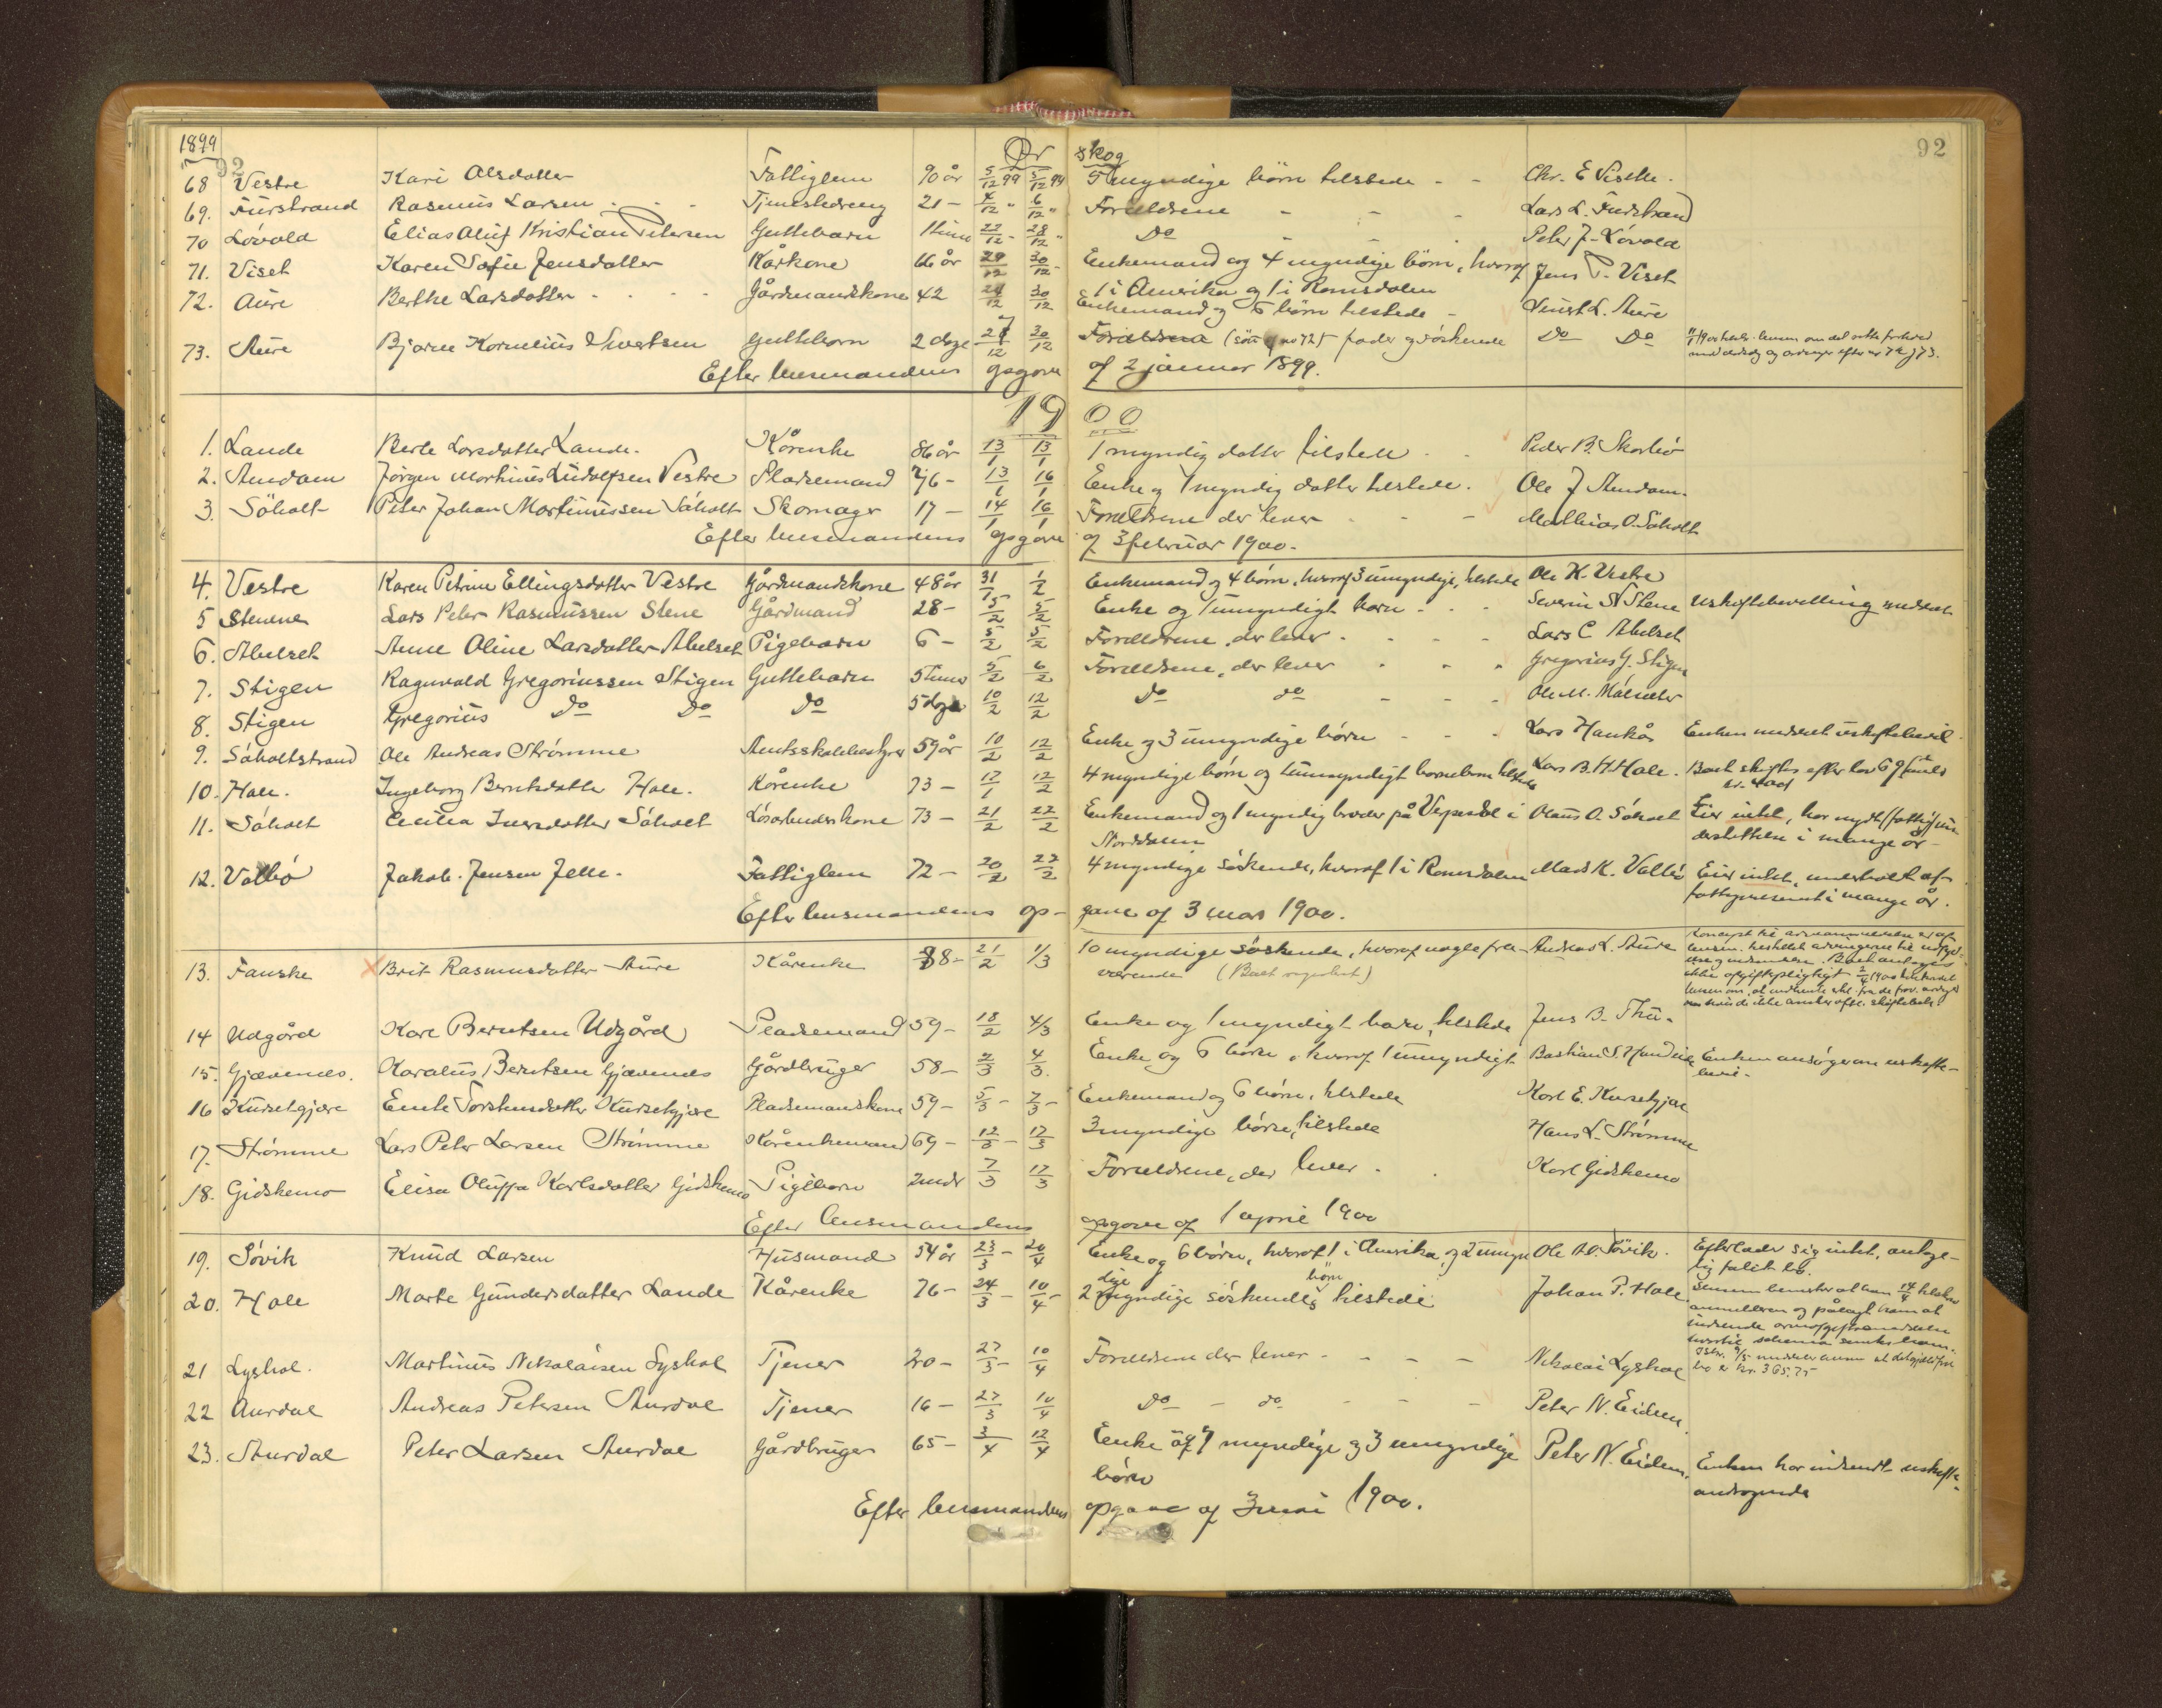 1899 Ør skog 92
92
68 Vestre Kari Olsdatter Fattiglem 90 år 5/12 99 5/12 99 5 myndige børn tilstede - - Chr. E Vestre.
69. Furstrand Rasmus Larsen Tjenestedreng 21 - 4/12 " 6/12 " Forældrene - - - Lars L. Furstrand
70 Løvold Elias Oluf Kristian Petersen Guttebarn 1 time 22/12 - 28/12 " Do Peter J. Løvold
71. Viset Karen Sofie Jensdatter Kårkone 66 år 29/12 30/12 - Enkemand og 4 myndige børn, hvoraf Jens P. Viset
1 i Amerika og 1 i Romsdalen
72. Aure Berthe Larsdatter Gårdmandskone 42 24/12 30/12 Enkemand og 6 børn tilstede - Sivert L. Aure
73. Aure Bjarne Kornelius Sivertsen Guttebarn 2 dage 27/12 30/12 Forældrene (søn af no 72) fader og søskende Do Do
Efter lensmandens opgave af 2 januar 1899.
19 00
1. Lande Berte Larsdatter Lande. Kårenke 86 år 13/1 13/1 1 myndig datter tilstede - - Peder B. Skorbø
2. Amdam Jørgen Martinus Ludolfsen Vestre Pladsemand 76 - 13/1 16/1 Enke og 1 myndig datter tilstede. Ole J Amdam.
3. Søholt Peter Johan Martinussen Søholt Skomager 17 - 14/1 16/1 Forældrene der lever - - Mathias O. Søholt
Efter lensmandens opgave af 3 februar 1900.
4. Vestre Karen Petrine Ellingsdatter Vestre Gårdmandskone 48 år 31/1 1/2 Enkemand og 4 børn, hvoraf 3 umyndige, tilstede Ole K. Vestre
5 Stenene Lars Peter Rasmussen Stene Gårdmand 28 - 5/2 5/2 Enke og 1 umyndigt barn - - - Severin S. Stene Uskiftebevilling meddelt
6. Abelset Anne Oline Larsdatter Abelset Pigebarn 6 - 5/2 5/2 Forældrene, der lever - - - - Lars C Abelset
7. Stigen Ragnvald Gregoriussen Stigen Guttebarn 5 timer 5/2 6/2 Forældrene, der lever - - - Gregorius G. Stigen
8. Stigen Gregorius Do Do Do 5 dage 10/2 12/2 Do do - - - Ole M.
9. Søholtstrand Ole Andreas Strømme Amtsskolebestyrer 59 år 10/2 12/2 Enke og 3 umyndige børn - - - Lars Haukås Enken meddelt uskiftebevil.
10. Hole. Ingeborg Berntsdatter Hole. Kårenke 73 - 17/1 12/2 4 myndige børn og 1 umyndigt barnebarn tilstede Lars B. H. Hole. Boet skiftes efter lov 6 9
11. Søholt Cecilia Iversdatter Søholt Løsarbeiderskone 73 - 21/2 22/2 Enkemand og 1 myndig broder på i Olaus O. Søholt Eier intet, har nydt (fattig) un-
Norddalen derstøttelse i mange år -
12. Valbø Jakob. Jensen Jelle. Fattiglem 72 - 20/2 27/2 4 myndige søskende, hvoraf 1 i Romsdalen Mads K. Valbø Eier intet, underholdt af
fattigvæsenet i mange år.
Efter lensmandens op- gave af 3 mars 1900.
13. Fauske Brit Rasmusdatter Aure Kårenke 88 - 21/2 1/3 10 myndige søskende, hvoraf nogle fra- Andreas L. Aure
værende (Boet registrert)
14 Udgård Kare Berntsen Udgård Pladsemand 59 - 18/2 4/3 Enke og 1 myndigt barn, tilstede Jens B. Thu.
15. Gjævenes. Karolus Berntsen Gjævenes Gårdbruger 58 - 2/3 4/3. Enke og 6 børn, hvoraf 1 umyndigt Bastian S. Enken ansøger om uskifte-
bevil.
16 Kursetgjære Emte Torstensdatter Kursetgjære Pladsemandskone 59 - 5/3 - 7/3 - Enkemand og 6 børn, tilstede Karl E. Kursetgjære
17. Strømme Lars Peter Larsen Strømme Kårenkemand 69 - 12/3 - 17/3 3 myndige børn, tilstede Hans L. Strømme
18. Gidskemo Elisa Oluffa Karlsdatter Gidskemo Pigebarn 2 mdr 7/3 17/3 Forældrene, der lever. Karl Gidskemo
Efter lensmandens opgave af 1 april 1900
19. Søvik Knud Larsen Husmand 54 år 23/3 - 20/4 Enke og 6 børn, hvoraf 1 i Amerika, og 2 umyn Ole A. Søvik. Efterlader sig intet, antage-
dige lig fallit bo.
20. Hole Marte Gundersdatter Lande Kårenke 76 - 24/3 - 10/4 - 2 myndige søskendes børn tilstede Johan P. Hole
21 Lyshol. Martinus Nikolaisen Lyshol Tjener 20 - 27/3 - 10/4 Forældrene der lever - - - - Nikolai Lyshol bo er kr. 365.75
22 Aurdal Andreas Petersen Aurdal Tjener 16 - 27/3 10/4 Do - do - - - Peter N. Eidem.
23. Aurdal Peter Larsen Aurdal Gårdbruger 65 - 3/4 12/4 Enke og 7 myndige og 3 umyndige Peter N. Eidem. Enken har indsendt uskifte-
børn andragende
Efter lensmandens opgave af 3 mai 1900.